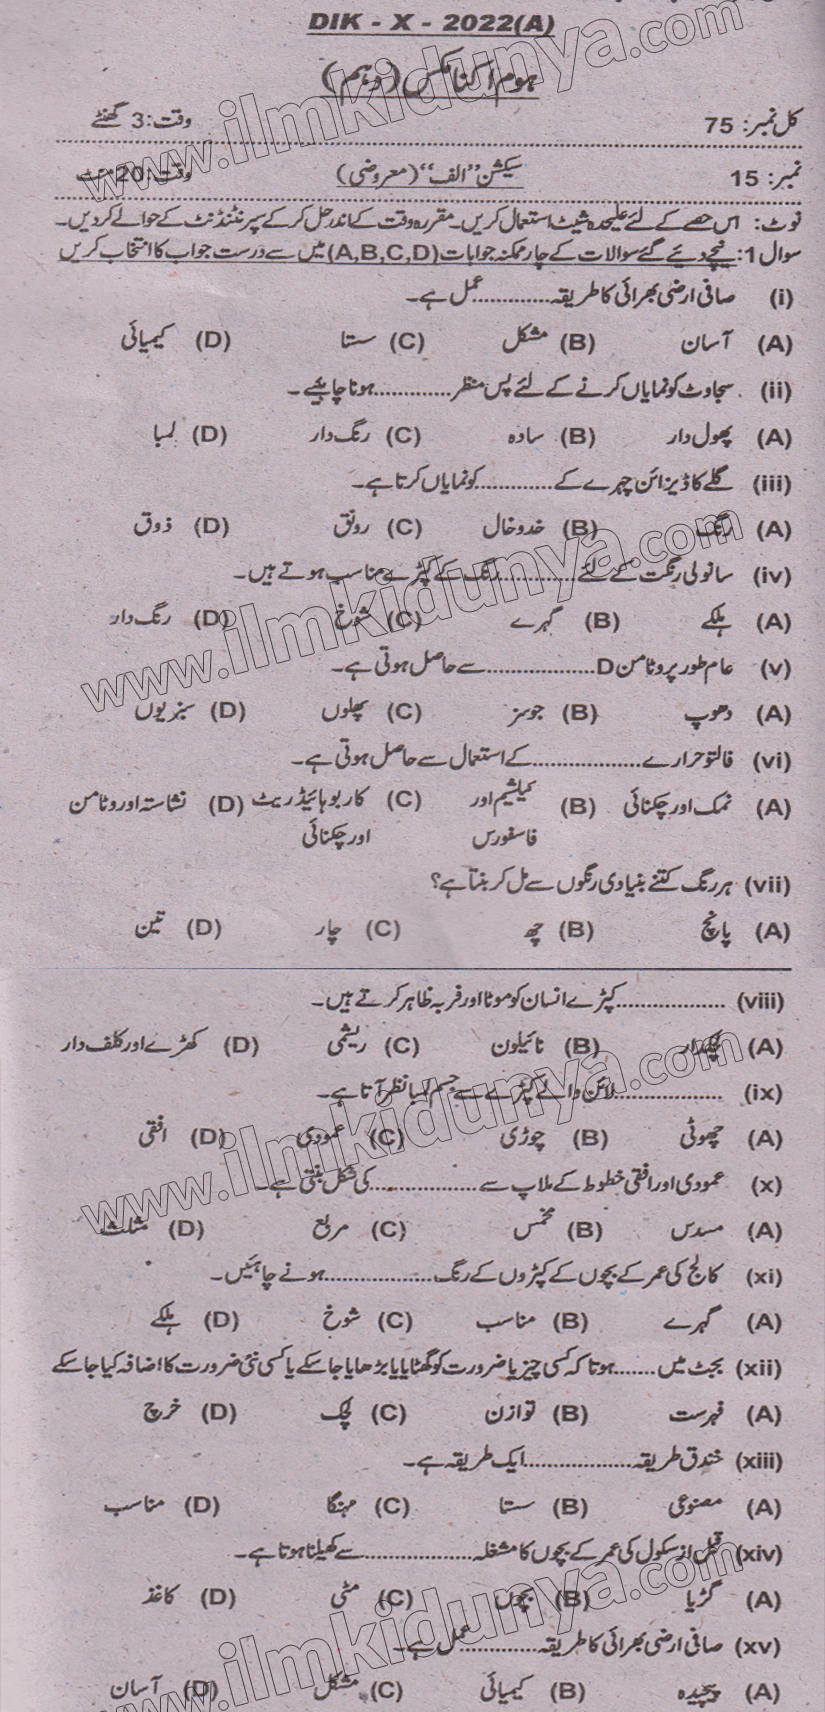 DIK - X - 2022(A)
ہوم اکنامکس (دہم)
کل نمبر: 75 وقت: 3 گھنٹے
نمبر: 15 سیکشن "الف" (معروضی) وقت: 20 منٹ
نوٹ: اس حصے کے لئے علیحدہ شیٹ استعمال کریں۔ مقررہ وقت کے اندر حل کرکے سپرنٹنڈنٹ کے حوالے کر دیں۔
سوال 1: نیچے دیئے گئے سوالات کے چار ممکنہ جوابات (A,B,C,D) میں سے درست جواب کا انتخاب کریں
(i) صافی ارضی بھرائی کا طریقہ............عمل ہے۔
(A) آسان (B) مشکل (C) سستا (D) کیمیائی
(ii) سجاوٹ کو نمایاں کرنے کے لئے پس منظر............ہونا چاہیئے۔
(A) پھول دار (B) سادہ (C) رنگ دار (D) لمبا
(iii) گلے کا ڈیزائن چہرے کے............کو نمایاں کرتا ہے۔
(A) رنگ (B) خدوخال (C) رونق (D) ذوق
(iv) سانولی رنگت کے لئے............رنگ کے کپڑے مناسب ہوتے ہیں۔
(A) ہلکے (B) گہرے (C) شوخ (D) رنگ دار
(v) عام طور پر وٹامن D..................سے حاصل ہوتی ہے۔
(A) دھوپ (B) جوسز (C) پھلوں (D) سبزیوں
(vi) فالتو حرارے..................کے استعمال سے حاصل ہوتی ہے۔
(A) نمک اور چکنائی (B) کیلشیم اور (C) کاربوہائیڈریٹ (D) نشاستہ اور وٹامن
فاسفورس اور چکنائی
(vii) ہر رنگ کتنے بنیادی رنگوں سے مل کر بنتا ہے؟
(A) پانچ (B) چھ (C) چار (D) تین
(viii) ..................کپڑے انسان کو موٹا اور فربہ ظاہر کرتے ہیں۔
(A) چمکدار (B) نائیلون (C) ریشمی (D) کھڑے اور کلف دار
(ix) ..................لائن والے کپڑے سے جسم لمبا نظر آتا ہے۔
(A) چھوٹی (B) چوڑی (C) عمودی (D) افقی
(x) عمودی اور افقی خطوط کے ملاپ سے..................کی شکل بنتی ہے۔
(A) مسدس (B) مخمس (C) مربع (D) مثلث
(xi) کالج کی عمر کے بچوں کے کپڑوں کے رنگ..................ہونے چاہئیں۔
(A) گہرے (B) مناسب (C) شوخ (D) ہلکے
(xii) بجٹ میں.......ہوتا کہ کسی چیز یا ضرورت کو گھٹایا یا بڑھایا جا سکے یا کسی نئی ضرورت کا اضافہ کیا جا سکے
(A) فہرست (B) توازن (C) لچک (D) خرچ
(xiii) خندق طریقہ..................ایک طریقہ ہے۔
(A) مصنوعی (B) سستا (C) مہنگا (D) مناسب
(xiv) قبل از سکول کی عمر کے بچوں کا مشغلہ..................سے کھیلنا ہوتا ہے۔
(A) گڑیا (B) بچوں (C) مٹی (D) کاغذ
(xv) صافی ارضی بھرائی کا طریقہ............عمل ہے۔
(A) پیچیدہ (B) کیمیائی (C) مشکل (D) آسان
www.ilmkidunya.com
www.ilmkidunya.com
www.ilmkidunya.com
www.ilmkidunya.com